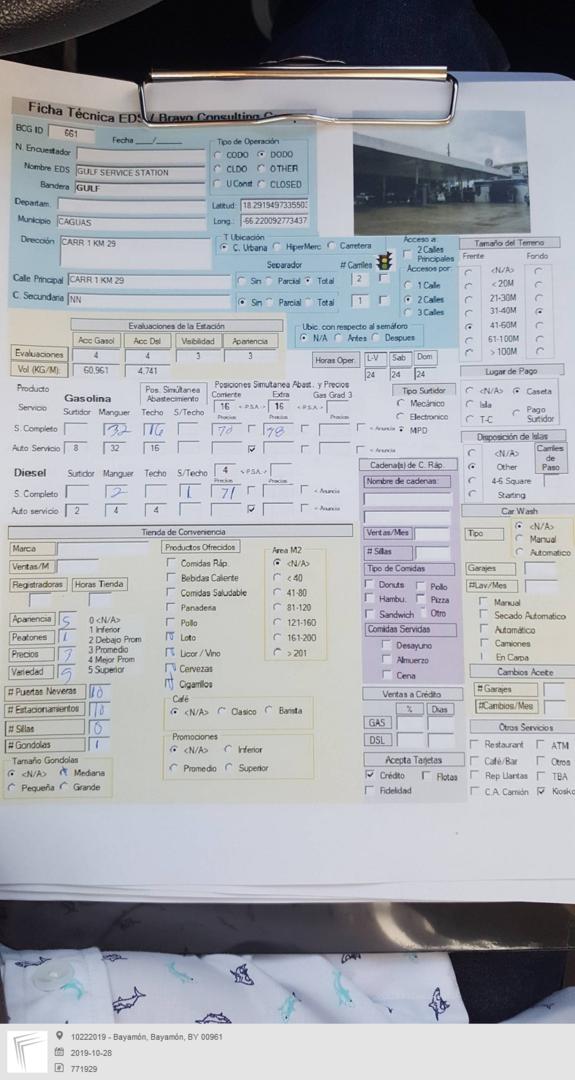 Ficha Técnica EDS / Bravo Consulting
BCG ID 661 Fecha __/__/__
N. Encuestador
Nombre EDS GULF SERVICE STATION
Bandera GULF
Departam.
Municipio CAGUAS
Dirección CARR 1 KM 29
Tipo de Operación
CODO DODO
CLDO OTHER
U Const CLOSED
Latitud: 18.291949733550
Long.: -66.220092773437
T Ubicación
C. Urbana HiperMerc Carretera
Acceso a:
2 Calles
Principales
Accesos por:
1 Calle
2 Calles
3 Calles
Separador # Carriles
Calle Principal CARR 1 KM 29 Sin Parcial Total 2
C. Secundaria NN Sin Parcial Total 1
Tamaño del Terreno
Frente Fondo
<N/A>
< 20M
21-30M
31-40M
41-60M
61-100M
> 100M
Evaluaciones de la Estación
Acc Gasol Acc Dsl Visibilidad Apariencia
Evaluaciones 4 4 3 3
Vol (KG/M): 60,961 4,741
Ubic. con respecto al semáforo
N/A Antes Despues
Horas Oper. L-V Sab Dom
24 24 24
Lugar de Pago
<N/A> Caseta
Isla Pago
T-C Surtidor
Producto Gasolina Pos. Simúltanea Abastecimiento Posiciones Simultanea Abast. y Precios
Corriente Extra Gas Grad 3
Servicio Surtidor Manguer Techo S/Techo 16 < P.S.A.> 16 < P.S.A.>
Precios Precios Precios
S. Completo 32 16 70 98 < Anuncia
Auto Servicio 8 32 16 < Anuncia
Tipo Surtidor
Mecánico
Electronico
MPD
Disposición de Islas
<N/A>
Other
4-6 Square
Starting
Carriles de Paso
Diesel Surtidor Manguer Techo S/Techo 4 < P.S.A.>
Precios Precios
S. Completo 2 1 71 < Anuncia
Auto servicio 2 4 4 < Anuncia
Cadena(s) de C. Ráp.
Nombre de cadenas:
Ventas/Mes
# Sillas
Tipo de Comidas
Donuts Pollo
Hambu. Pizza
Sandwich Otro
Comidas Servidas
Desayuno
Almuerzo
Cena
Car Wash
Tipo <N/A>
Manual
Automatico
Garajes
#Lav/Mes
Manual
Secado Automatico
Automático
Camiones
En Carpa
Tienda de Conveniencia
Marca
Ventas/M
Registradoras Horas Tienda
Apariencia 5
Peatones 1
Precios 3
Variedad 5
0 <N/A>
1 Inferior
2 Debajo Prom
3 Promedio
4 Mejor Prom
5 Superior
# Puertas Neveras 10
# Estacionamientos 10
# Sillas 0
# Gondolas 1
Tamaño Gondolas
<N/A> Mediana
Pequeña Grande
Productos Ofrecidos
Comidas Ráp.
Bebidas Caliente
Comidas Saludable
Panaderia
Pollo
Loto
Licor / Vino
Cervezas
Cigarrillos
Area M2
<N/A>
< 40
41-80
81-120
121-160
161-200
> 201
Café
<N/A> Clasico Barista
Promociones
<N/A> Inferior
Promedio Superior
Ventas a Crédito
% Dias
GAS
DSL
Acepta Tarjetas
Crédito Flotas
Fidelidad
Cambios Aceite
# Garajes
#Cambios/Mes
Otros Servicios
Restaurant ATM
Café/Bar Otros
Rep Llantas TBA
C.A. Camión Kiosko
10222019 - Bayamón, Bayamón, BY 00961
2019-10-28
771929